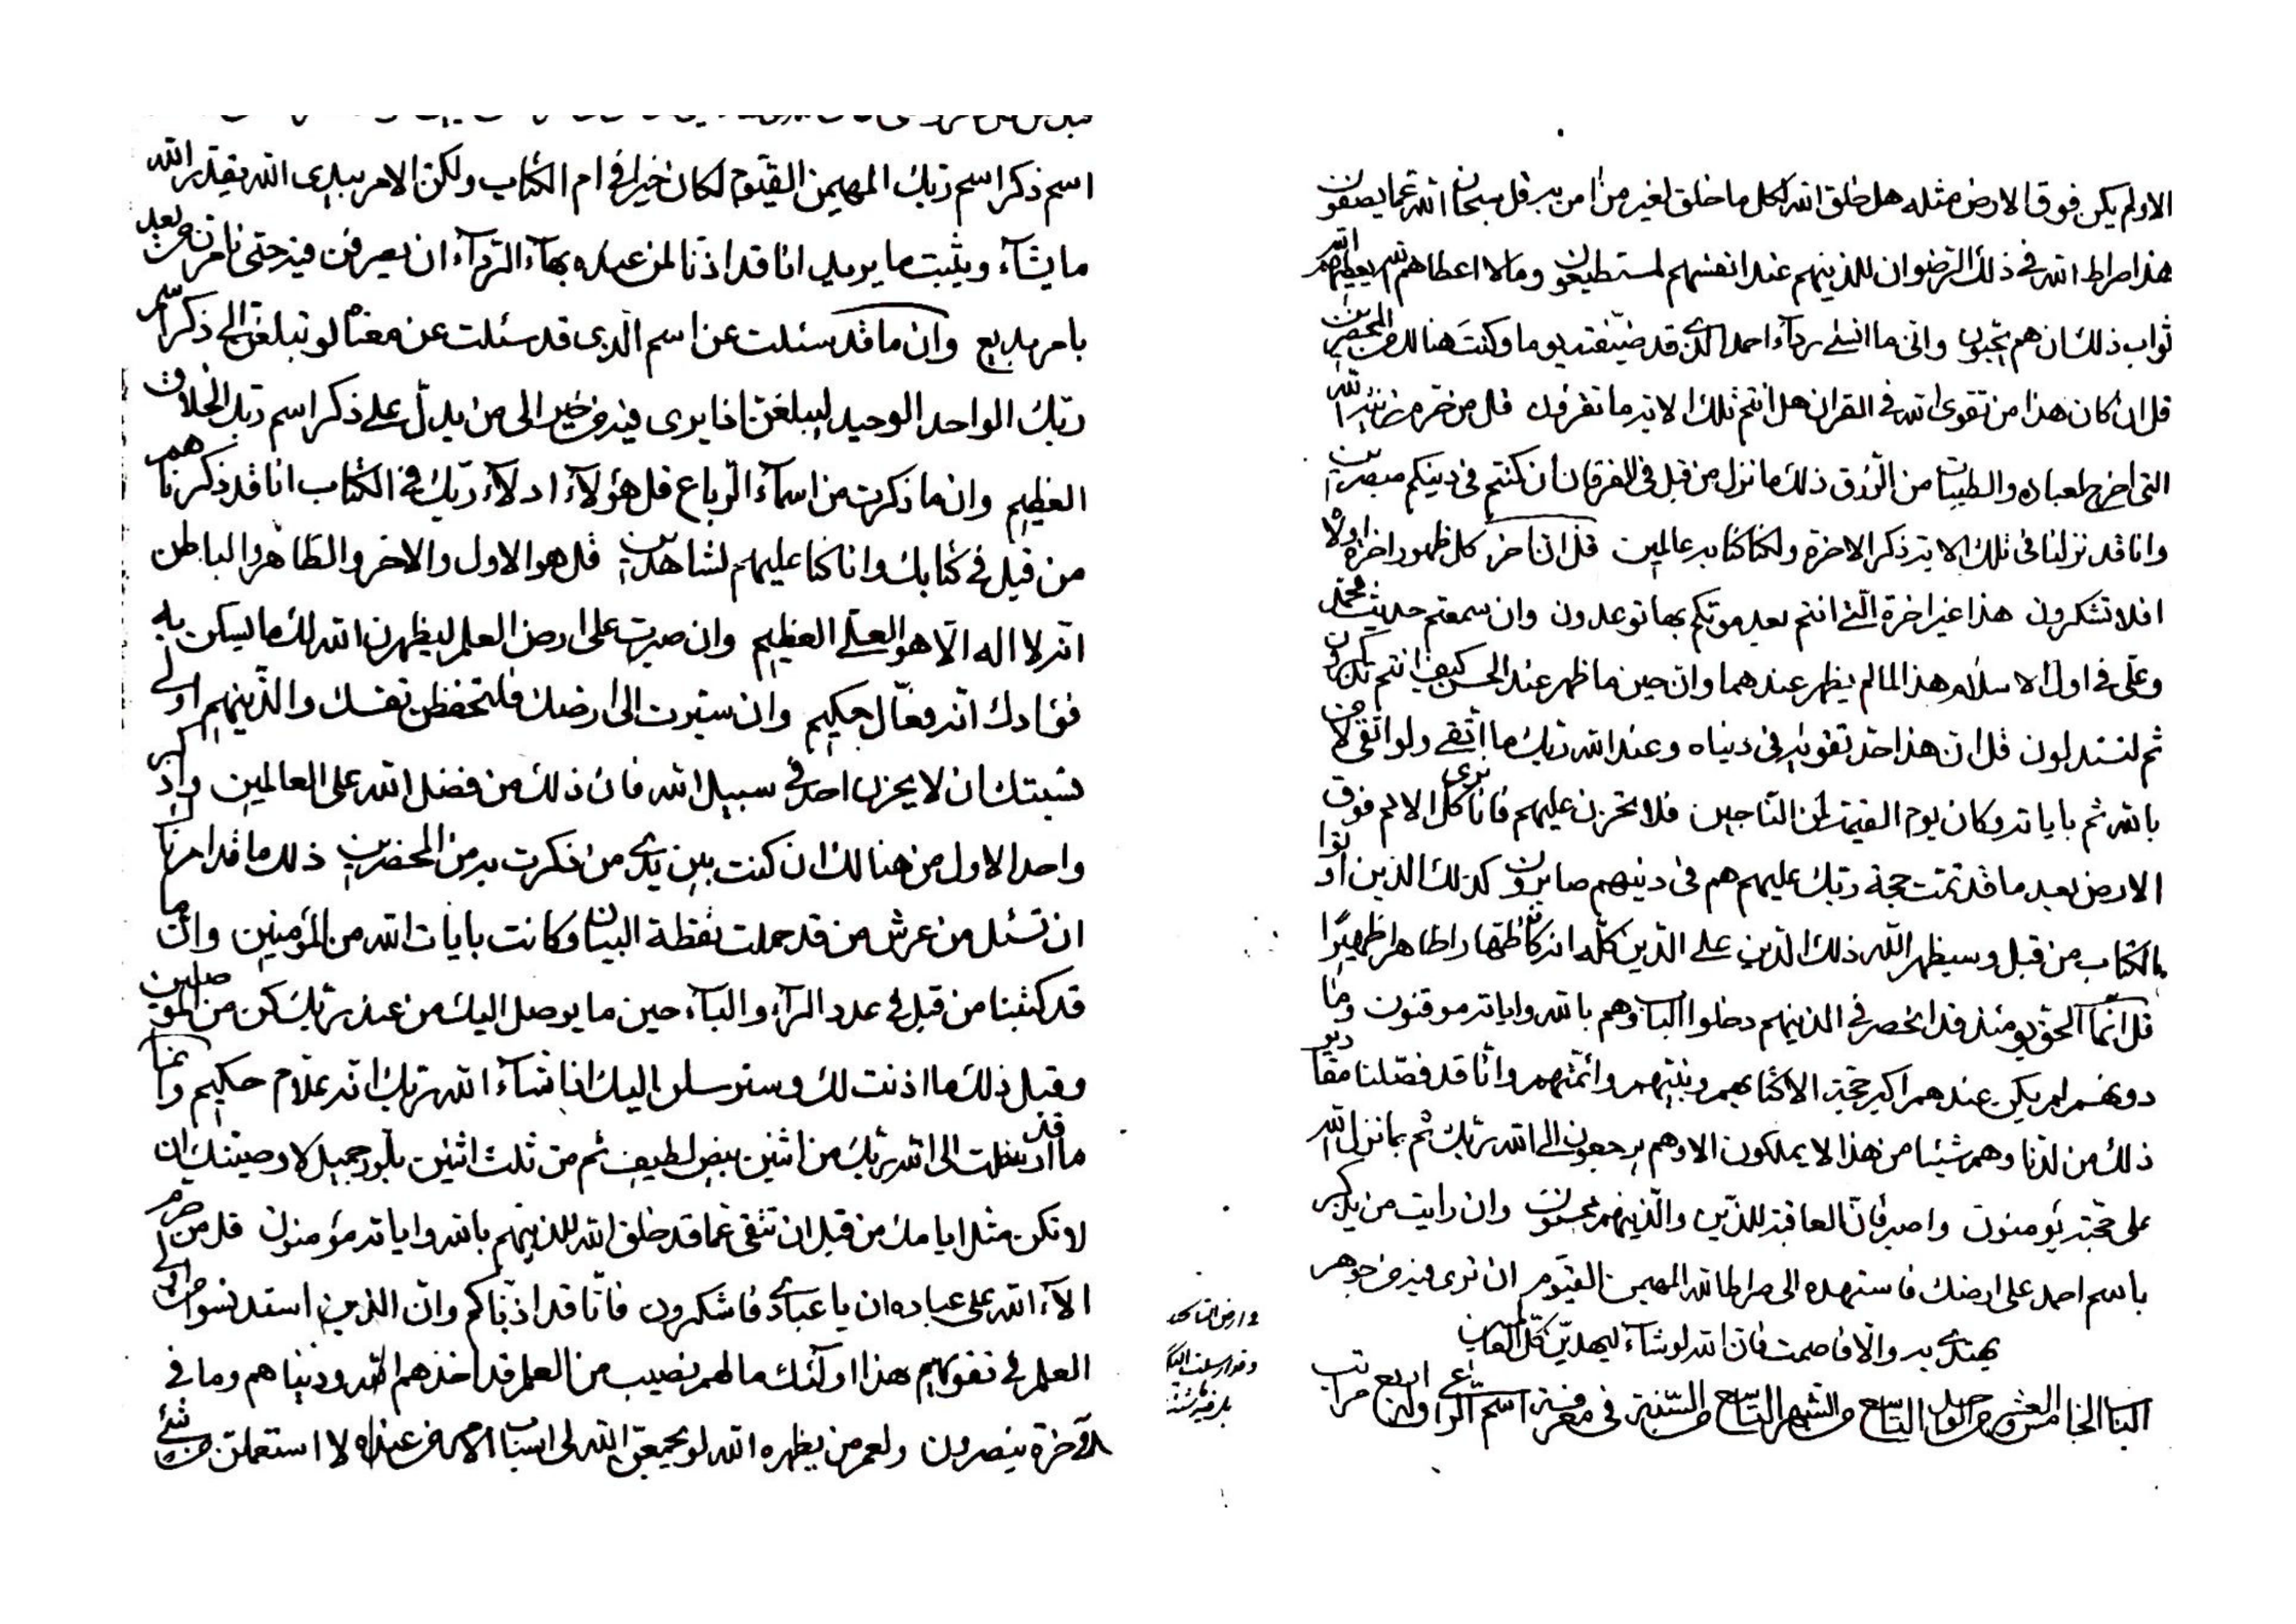 الا ولم يكن فوق الارض مثله هل خلق الله كل ما خلق لغير من امن به قل سبحان الله عما يصفون
هذا صراط الله في ذلك الرضوان للذينهم عند انفسهم لمستطيعون وما لا اعطاهم الله
ثواب ذلك ان هم يحبون وانى ما انسى رداء احمد الذي قد ضيفته يوما وكنت هنالك من المحضرين
قل ان كان هذا من تقوى الله في القران هل انتم تلك الاية ما تقرؤن قل من حرم زينة الله
التى اخرج لعباده والطيبات من الرزق ذلك ما نزل من قبل في الفرقان ان كنتم في دينكم مبصرين
وانا قد نزلنا في تلك الاية ذكر الاخرة ولكنا كنا به عالمين قل ان اخر كل ظهور اخرة اولا
افلا تشكرون هذا غير اخرة التي انتم بعد موتكم بها توعدون وان سمعتم حديث محمد
وعلى في اول الاسلام هذا لما لم يظهر عندهما وان حين ما ظهر عند الحسن كيف انتم تذكرون
ثم لتستدلون قل ان هذا حد تقويه في دنياه وعند الله ربك ما اتقى ولو اتقى لامن
بالله ثم باياته وكان يوم القيمة لمن الناجين فلا تحزن عليهم فانا نرى كل الامم فوق
الارض بعد ما قد تمت حجة ربك عليهم هم في دينهم صابرون كذلك الذين اوتوا
الكتاب من قبل وسيظهر الله ذلك الدين على الدين كله انه كان ظهارا ظاهرا ظهيرا
قل انما الحق يومئذ قد انحصر في الذينهم دخلوا الباب وهم بالله واياته موقنون وما
دونهم لم يكن عندهم اكبر حجة الا كتابهم ونبيهم وائمتهم وانا قد فصلنا مقادير
ذلك من لدنا وهم شيئا من هذا لا يملكون الا وهم يرجعون الى الله ربك ثم بما نزل الله
على حجته يؤمنون واصبر فان العاقبة للدين والذينهم محسنون وان رايت من يذكر
باسم احمد على ارضك فاستهده الى صراط الله المهيمن القيوم ان ترى فيه من جوهر
يهتدي به والا فاصمت فان الله لو شاء ليهدين كل العالمين
الباب الخامس والعشر من الواحد التاسع من الشهر التاسع من السنة في معرفة اسم الراعي وله اربع مراتب
اسم ذكر اسم ربك المهيمن القيوم لكان خيرا في ام الكتاب ولكن الامر بيدى الله يقدر الله
ما يشاء ويثبت ما يريد انا قد اذنا لمن عباده بهاء الترداء ان يصرفن فيه حتى نامرن من بعد
بامر بديع وان ما قد سئلت عن اسم الذى قد سئلت عن معناه لو تبلغن الى ذكر اسم
ربك الواحد الوحيد ليبلغن اذا يرى فيه من خير الى من يدل على ذكر اسم ربك الخلاق
العظيم وان ما ذكرت من اسماء الرباع قل هؤلاء ادلاء ربك في الكتاب انا قد ذكرناهم
من قبل في كتابك وانا كنا عليهم لشاهدين قل هو الاول والاخر والظاهر والباطن
انه لا اله الا هو العلي العظيم وان صبرت على ارض العلم ليظهرن الله لك ما يسكن به
فؤادك انه فعال حكيم وان سيرت الى ارضك فلتحفظن نفسك والذينهم اولى
نسبتك ان لا يحزن احد في سبيل الله فان ذلك من فضل الله على العالمين واذكر
واحد الاول من هنالك ان كنت بين يدي من ذكرت به من المحضرين ذلك ما قد امرنا
ان تسئل من عرش من قد حملت نقطة البيان وكانت بايات الله من المؤمنين وان ما
قد كتبنا من قبل في عدد الراء والباء حين ما يوصل اليك من عند ربك كن من الموصلين
وقبل ذلك ما اذنت لك وسنرسلن اليك اذا شاء الله ربك انه علام حكيم وانما
ما قد ارسلت الى الله ربك من اثنين بيض لطيف ثم من ثلث اثنين بلور جميل لاوصينك ان
لا تكن مثل ايامك من قبل ان تتقى عما قد خلق الله للذينهم بالله واياته مؤمنون قل من حرم
الاء الله على عباده ان يا عبادي فاشكرون فانا قد اذناكم وان الذين استدنسوا الى
العلم في تقويهم هذا اولئك ما لهم نصيب من العلم قد اخذهم الله ودنياهم وما في
الاخرة ينصرون ولعمر من يظهره الله لو يجمعن الله لى اسباب الارض عنداه لا استعملن من شئ